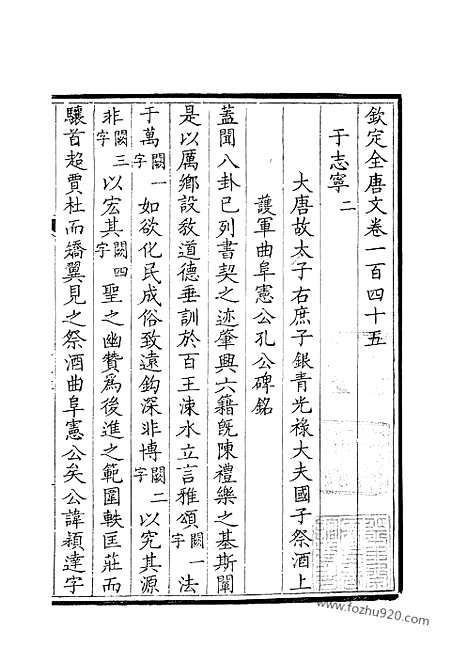 欽定全唐文卷一百四十五
于志寧二
大唐故太子右庶子銀青光祿大夫國子祭酒上
護軍曲阜憲公孔公碑銘
蓋聞八卦已列書契之迹肇興六籍旣陳禮樂之基斯闡
是以厲鄉設教道德垂訓於百王涑水立言雅頌闕一字法
于萬闕一字如欲化民成俗致遠鈎深非博闕二字以究其源
非闕三字以宏其闕四字聖之幽贊爲後進之範圍軼匡莊而
驤首超賈杜而矯翼見之祭酒曲阜憲公矣公諱穎達字
www.fozhu920.com